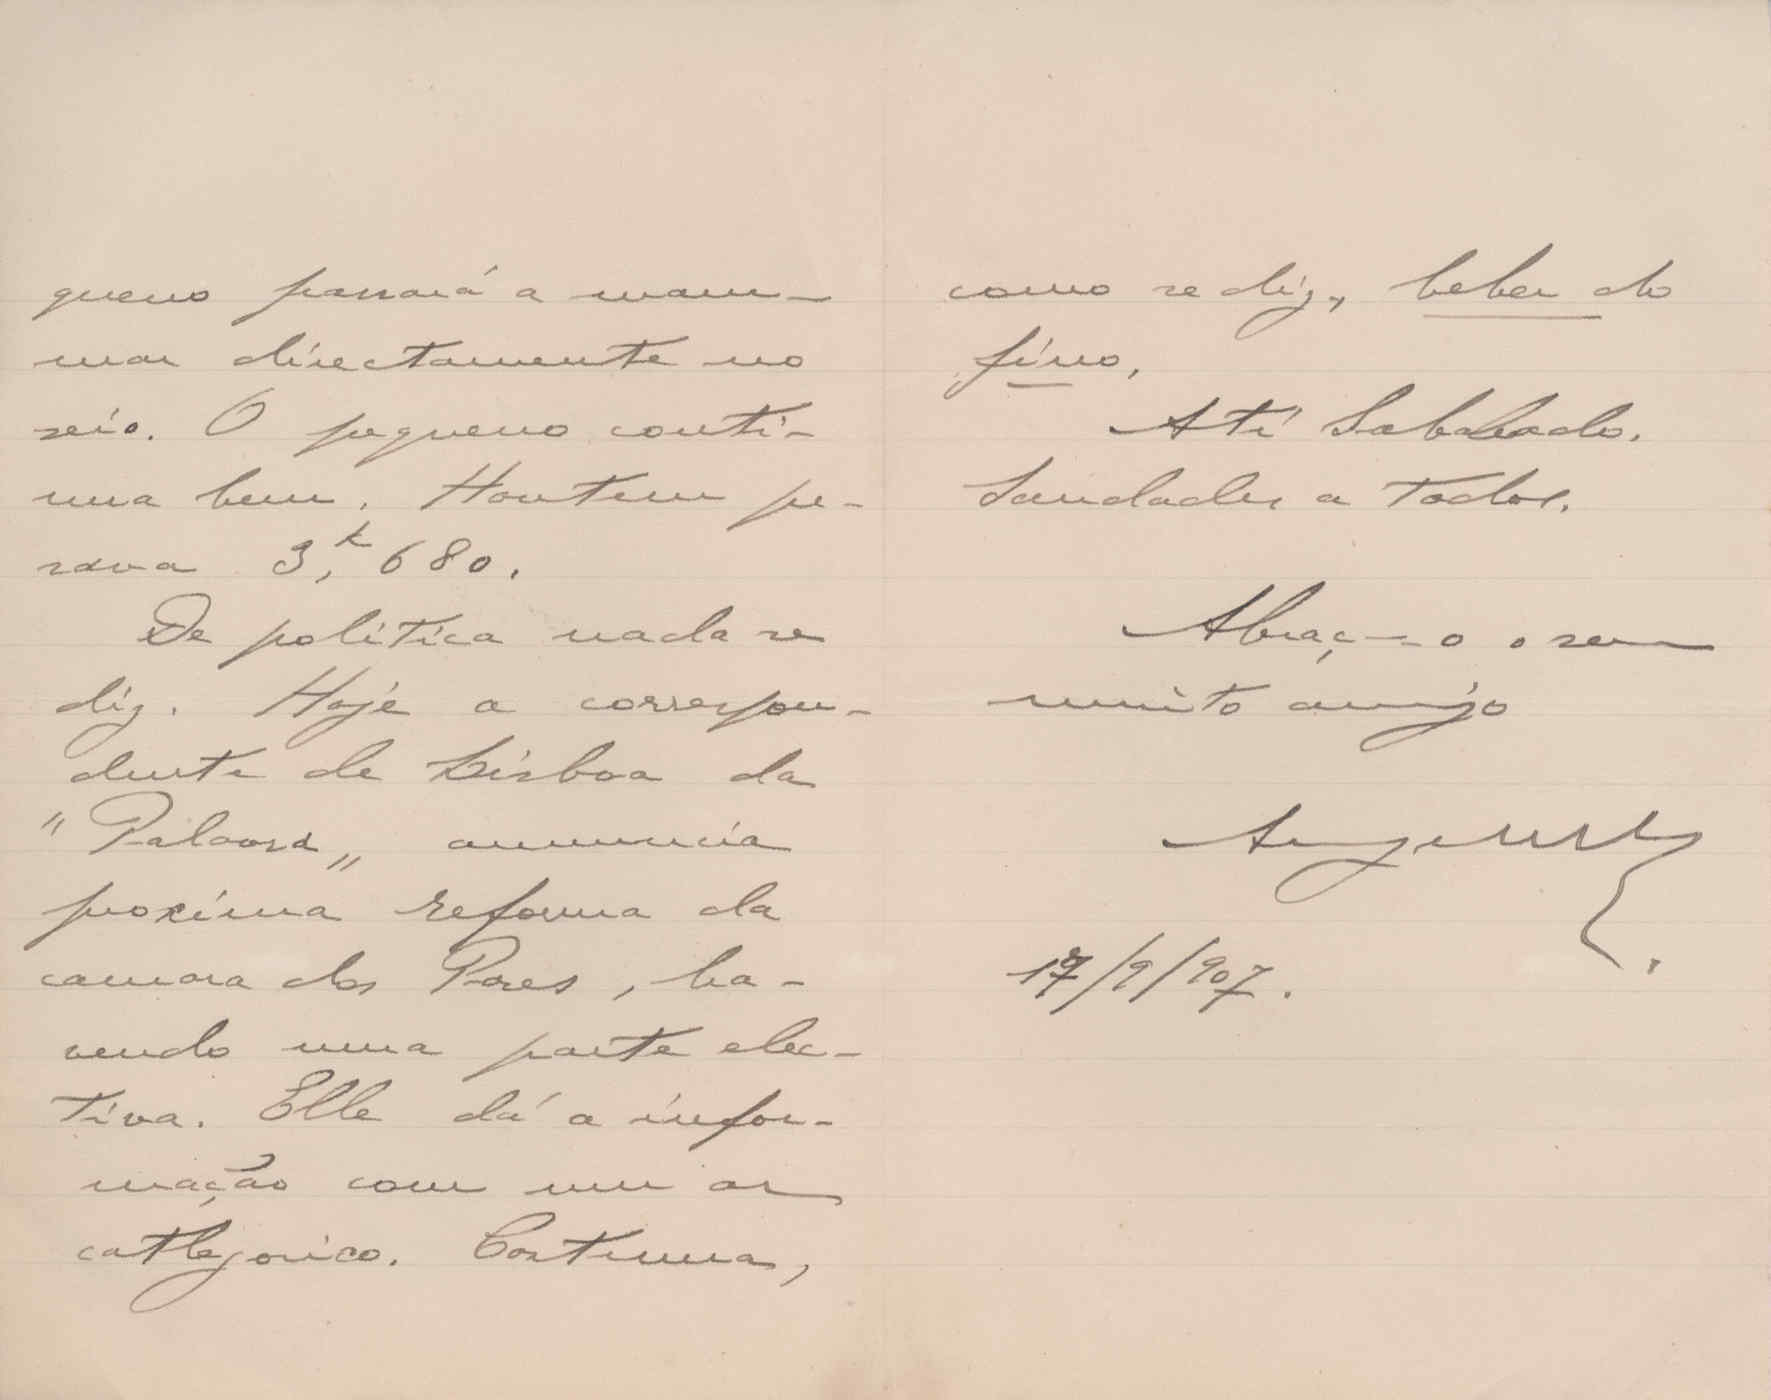 queno passará a mam-
mar directamente no
seio. O pequeno conti-
nua bem. Hontem pe-
sava 3,k 680.
De politica nada se
diz. Hoje a correspon-
dente de Lisboa da
"Palavra„ annuncia
proxima reforma da
camara dos Pares, ha-
vendo uma parte elec-
tiva. Elle dá a infor-
mação com um ar
cathegorico. Costuma,
como se diz, beber do
fino.
Até Sabbado.
Saudades a todos.
Abraça-o o seu
muito amigo
17/9/907.